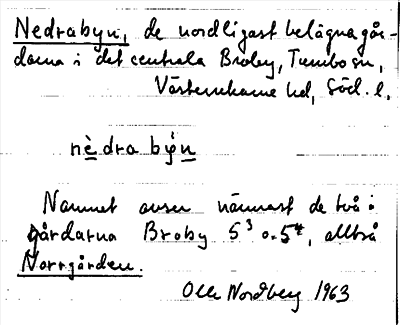 Nedrabyn, de nordligast belägna går-
darna i det centrala Broby, Tumbo sn,
Västerrekarne hd, Södl.
nèdra býn
Namnet avser närmast de två i
gårdarna Broby 5³ o. 5⁴, alltså
Norrgården.
Olle Nordberg 1963